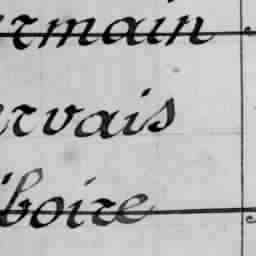 ermain
ervais
iboire